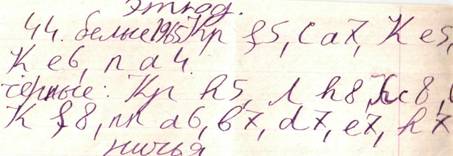 этюд.
44. белые 1965 Кр f5, С a7, К e5,
К e6, п a4
черные: Кр h5, Л h8, c8,
К f8, пп a6, b7, d7, e7, h7
ничья